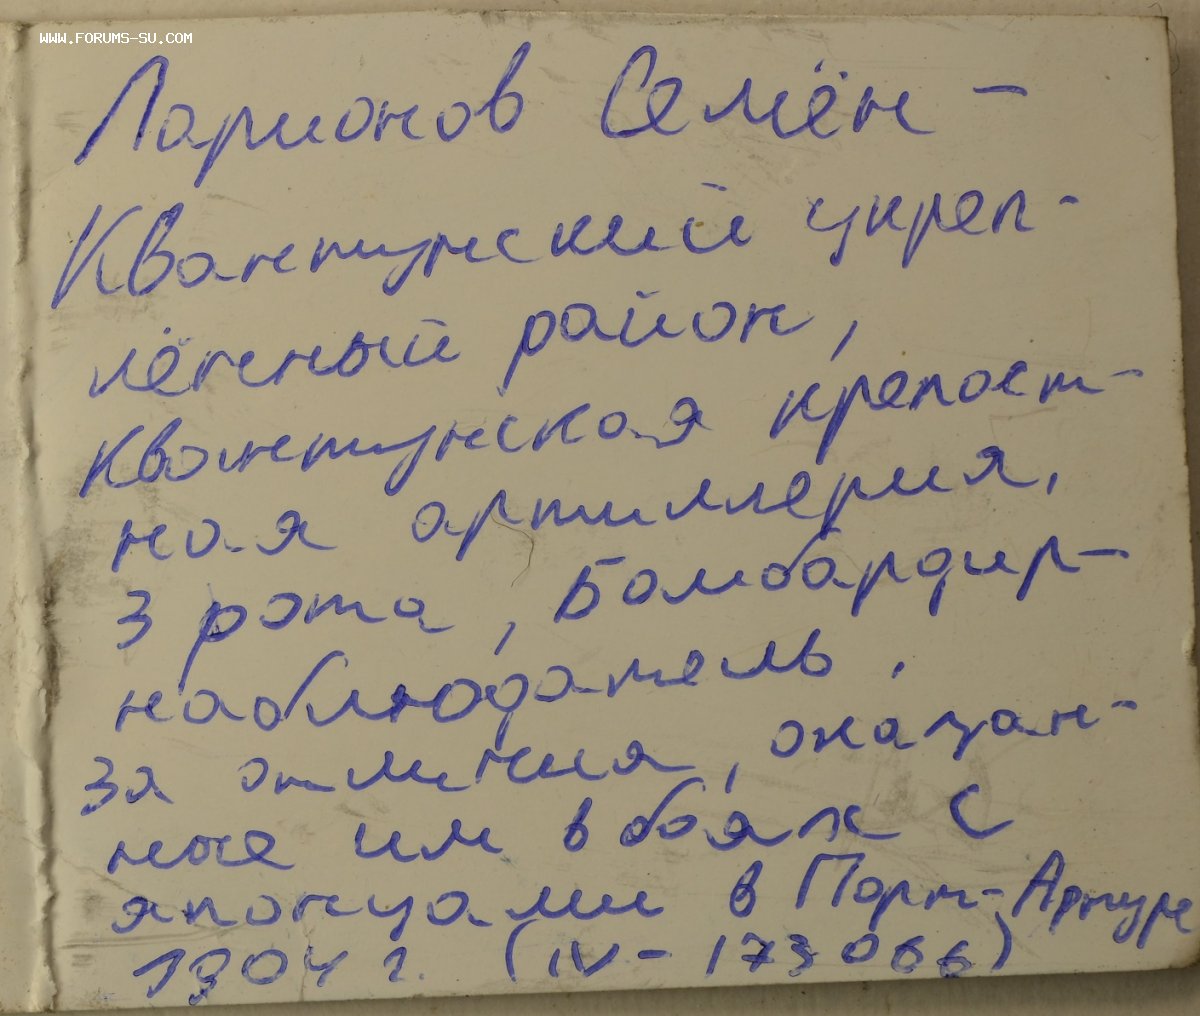 WWW.FORUMS-SU.COM
Ларионов Семён -
Квантунский укреп-
лённый район,
Квантунская крепост-
ная артиллерия,
3 рота, Бомбардир-
наблюдатель.
За отличия, оказан-
ные им в боях с
японцами в Порт-Артуре
1904 г. (IV - 173066)